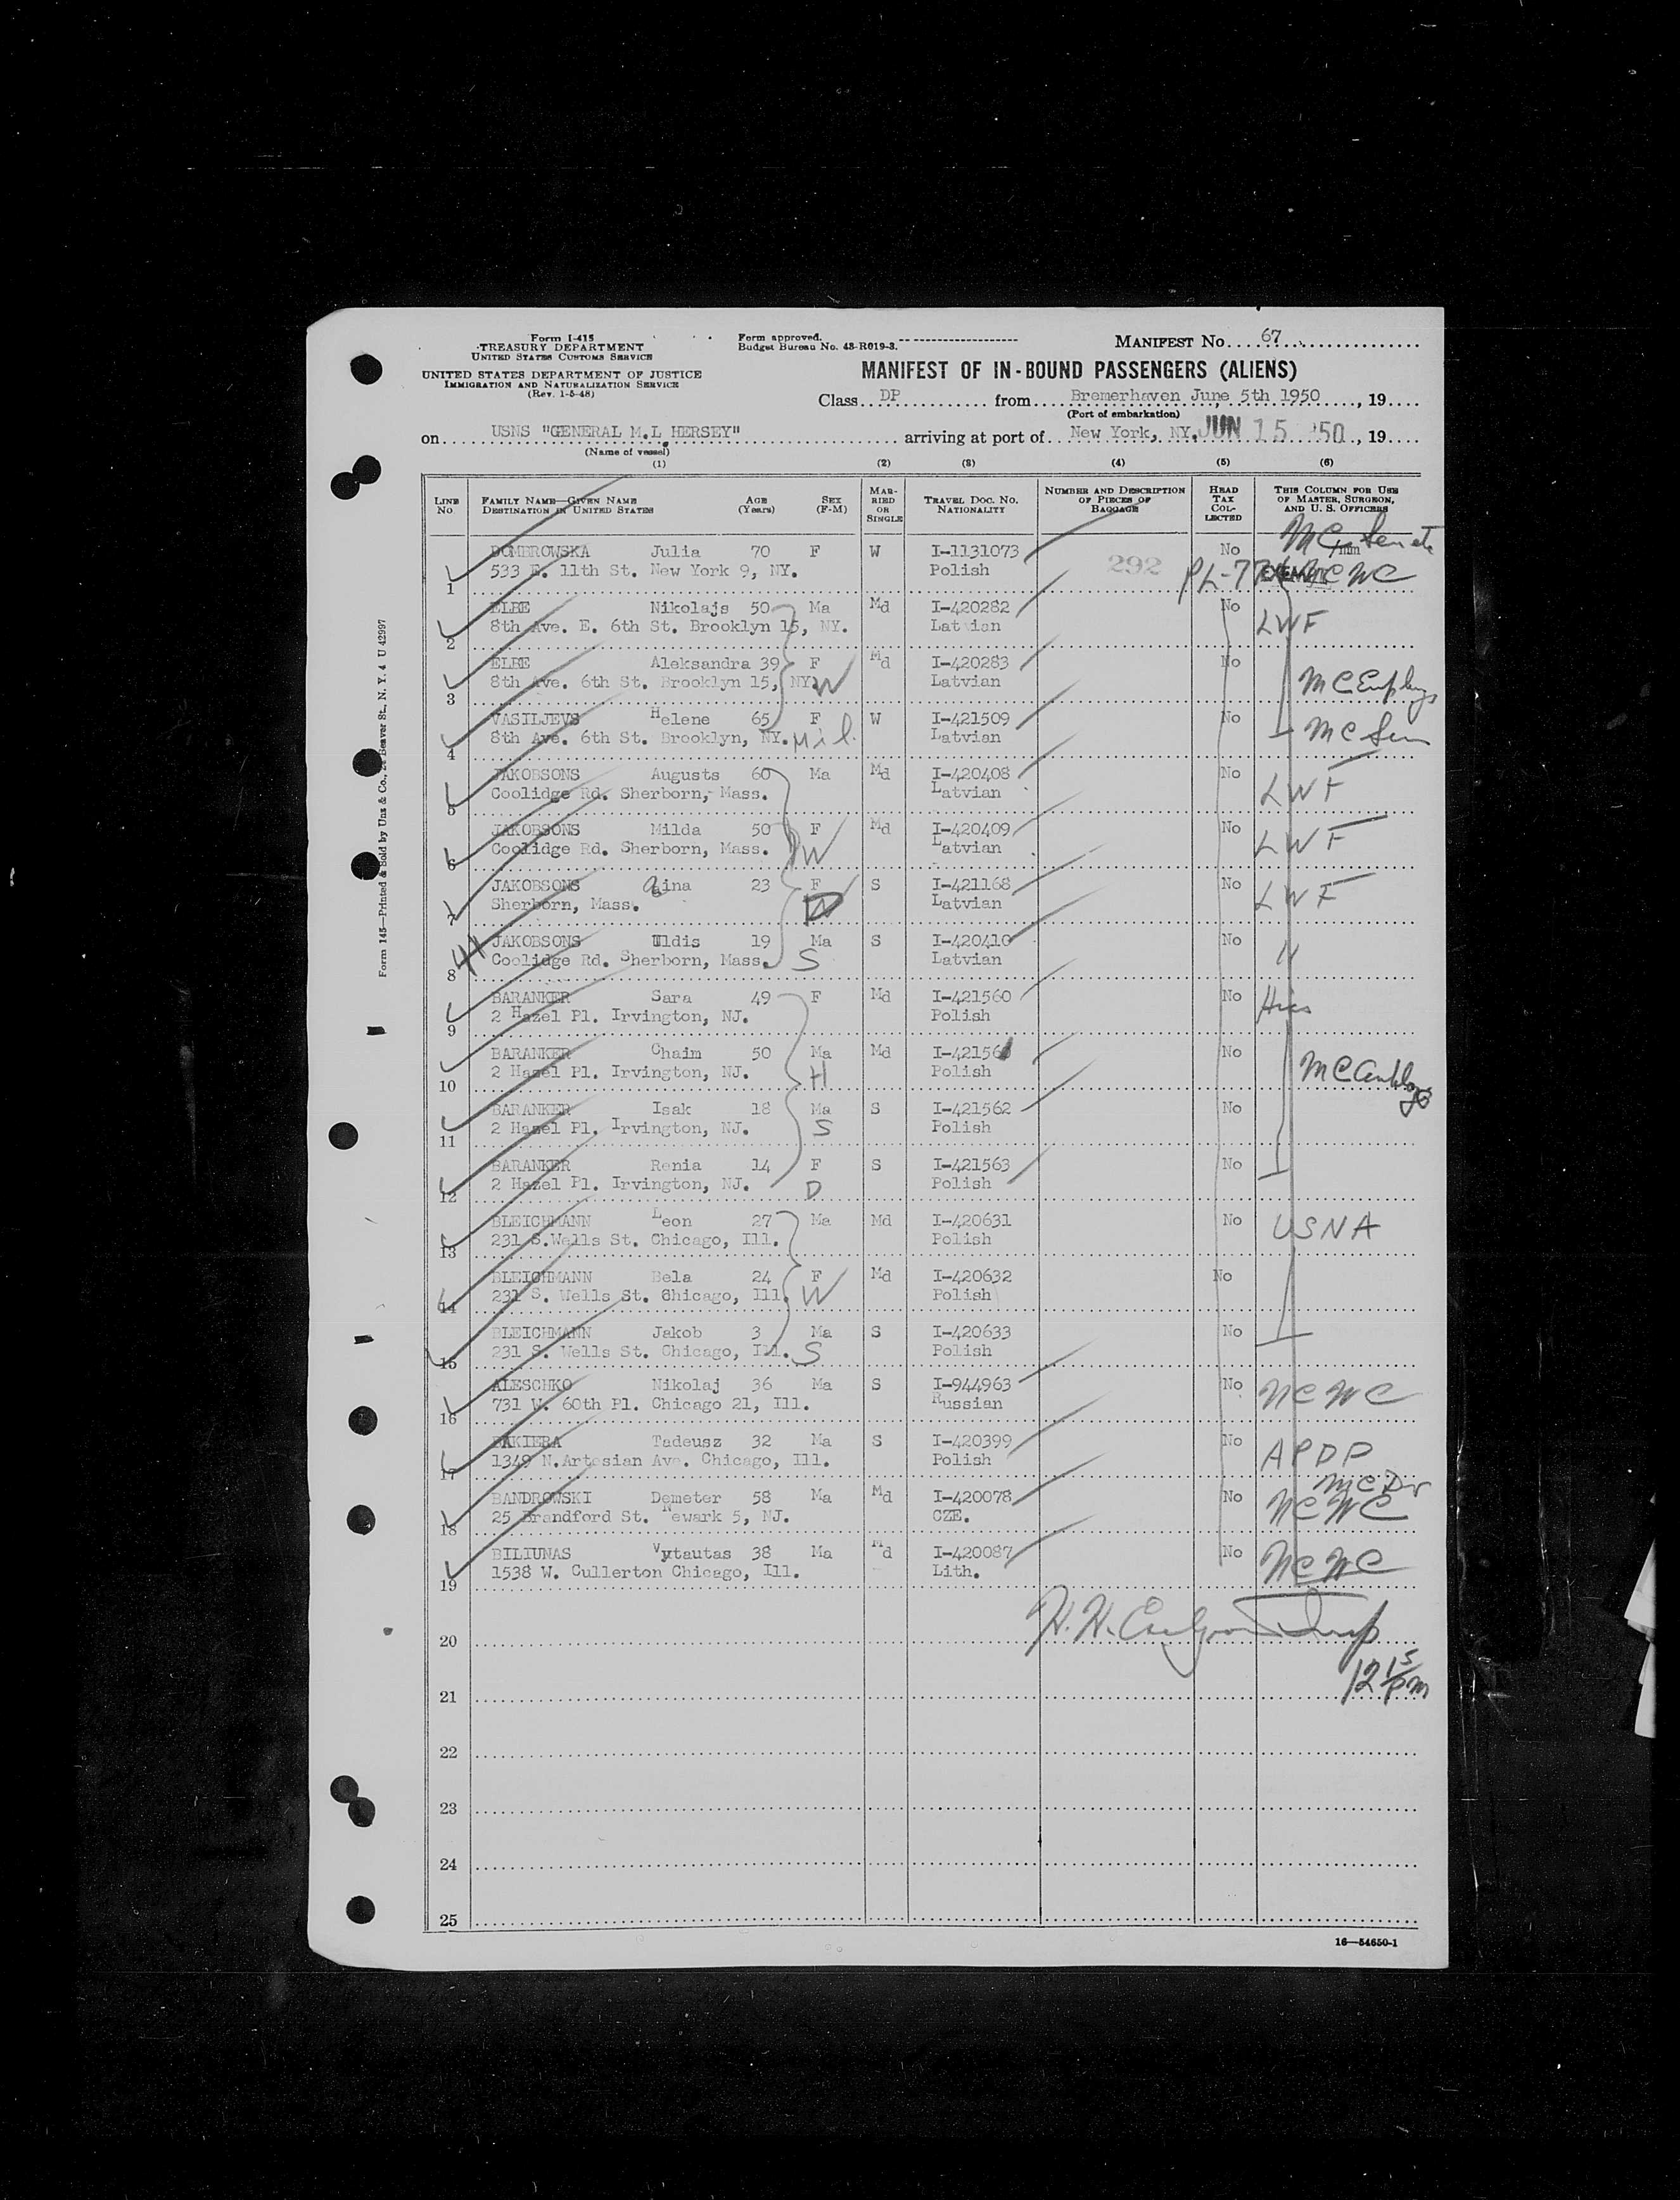 Form I-415
TREASURY DEPARTMENT
UNITED STATES CUSTOMS SERVICE
UNITED STATES DEPARTMENT OF JUSTICE
IMMIGRATION AND NATURALIZATION SERVICE
(Rev. 1-5-48)
Form approved.
Budget Bureau No. 43-R019-3.
MANIFEST No. 67
MANIFEST OF IN-BOUND PASSENGERS (ALIENS)
Class DP from Bremerhaven June 5th 1950, 19
(Port of embarkation)
on USNS "GENERAL M.L HERSEY" arriving at port of New York, NY. JUN 15 '50, 19
(Name of vessel)
(1) (2) (3) (4) (5) (6)
LINE NO
FAMILY NAME—GIVEN NAME DESTINATION IN UNITED STATES
AGE (Years)
SEX (F-M)
MARRIED OR SINGLE
TRAVEL DOC. NO. NATIONALITY
NUMBER AND DESCRIPTION OF PIECES OF BAGGAGE
HEAD TAX COLLECTED
THIS COLUMN FOR USE OF MASTER, SURGEON, AND U. S. OFFICERS
DOMBROWSKA Julia 70 F W I-1131073 No
1 533 E. 11th St. New York 9, NY. Polish 292 NCWC
ELBE Nikolajs 50 Ma Md I-420282 No LWF
2 8th Ave. E. 6th St. Brooklyn 15, NY. Latvian
ELBE Aleksandra 39 F Md I-420283 No
3 8th Ave. 6th St. Brooklyn 15, NY. W Latvian
VASILJEVS Helene 65 F W I-421509 No
4 8th Ave. 6th St. Brooklyn, NY. Mil. Latvian
JAKOBSONS Augusts 60 Ma Md I-420408 No LWF
5 Coolidge Rd. Sherborn, Mass. Latvian
JAKOBSONS Milda 50 F Md I-420409 No LWF
6 Coolidge Rd. Sherborn, Mass. W Latvian
JAKOBSONS Aina 23 F S I-421168 No LWF
7 Sherborn, Mass. D Latvian
JAKOBSONS Uldis 19 Ma S I-420410 No "
8 Coolidge Rd. Sherborn, Mass. S Latvian
BARANKER Sara 49 F Md I-421560 No Hias
9 2 Hazel Pl. Irvington, NJ. Polish
BARANKER Chaim 50 Ma Md I-421561 No
10 2 Hazel Pl. Irvington, NJ. H Polish
BARANKER Isak 18 Ma S I-421562 No
11 2 Hazel Pl. Irvington, NJ. S Polish
BARANKER Renia 14 F S I-421563 No
12 2 Hazel Pl. Irvington, NJ. D Polish
BLEICHMANN Leon 27 Ma Md I-420631 No USNA
13 231 S.Wells St. Chicago, Ill. Polish
BLEICHMANN Bela 24 F Md I-420632 No
14 231 S. Wells St. Chicago, Ill. W Polish
BLEICHMANN Jakob 3 Ma S I-420633 No
15 231 S. Wells St. Chicago, Ill. S Polish
ALESCHKO Nikolaj 36 Ma S I-944963 No NCWC
16 731 W. 60th Pl. Chicago 21, Ill. Russian
BAKIERA Tadeusz 32 Ma S I-420399 No APDP
17 1349 N.Artesian Ave. Chicago, Ill. Polish
BANDROWSKI Demeter 58 Ma Md I-420078 No NCWC
18 25 Brandford St. Newark 5, NJ. CZE.
BILIUNAS Vytautas 38 Ma Md I-420087 No NCWC
19 1538 W. Cullerton Chicago, Ill. Lith.
20
12 15 pm
21
22
23
24
25
16—54650-1
Form 145—Printed & Sold by Unz & Co., Beaver St., N. Y. 4 U 42997